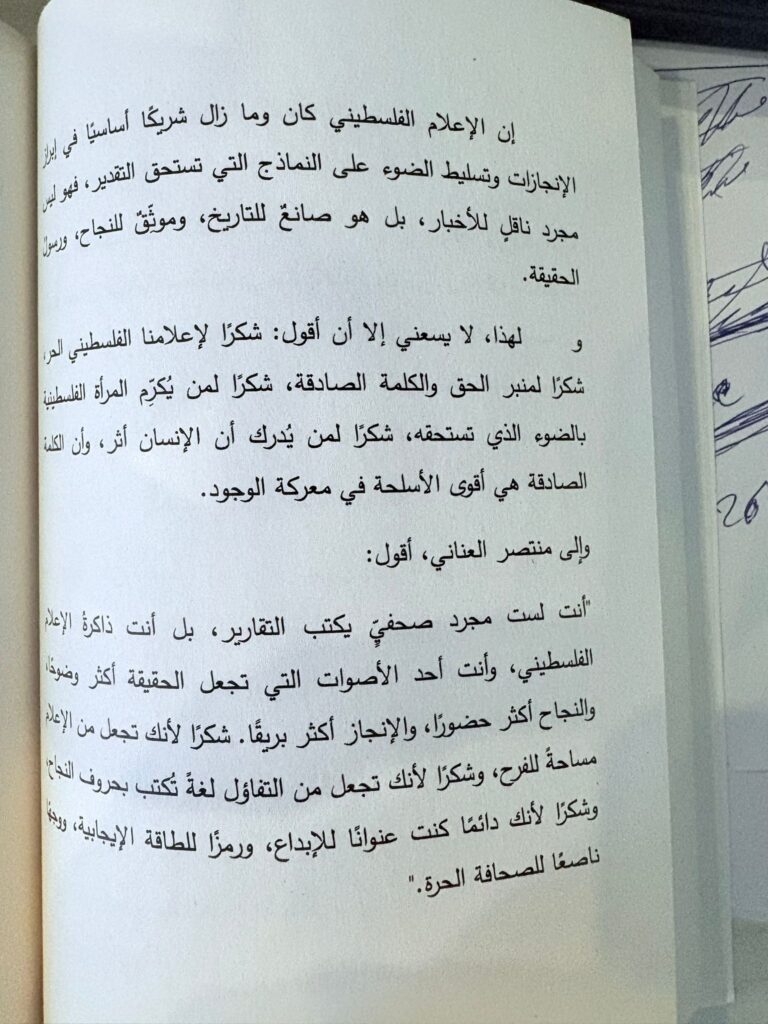 إن الإعلام الفلسطيني كان وما زال شريكًا أساسيًا في إبراز
الإنجازات وتسليط الضوء على النماذج التي تستحق التقدير، فهو ليس
مجرد ناقلٍ للأخبار، بل هو صانعٌ للتاريخ، وموثّقٌ للنجاح، ورسول
الحقيقة.
و لهذا، لا يسعني إلا أن أقول: شكرًا لإعلامنا الفلسطيني الحر،
شكرًا لمنبر الحق والكلمة الصادقة، شكرًا لمن يُكرّم المرأة الفلسطينية
بالضوء الذي تستحقه، شكرًا لمن يُدرك أن الإنسان أثر، وأن الكلمة
الصادقة هي أقوى الأسلحة في معركة الوجود.
وإلى منتصر العناني، أقول:
"أنت لست مجرد صحفيٍّ يكتب التقارير، بل أنت ذاكرةُ الإعلام
الفلسطيني، وأنت أحد الأصوات التي تجعل الحقيقة أكثر وضوحًا،
والنجاح أكثر حضورًا، والإنجاز أكثر بريقًا. شكرًا لأنك تجعل من الإعلام
مساحةً للفرح، وشكرًا لأنك تجعل من التفاؤل لغةً تُكتب بحروف النجاح،
وشكرًا لأنك دائمًا كنت عنوانًا للإبداع، ورمزًا للطاقة الإيجابية، ووجهًا
ناصعًا للصحافة الحرة."
26